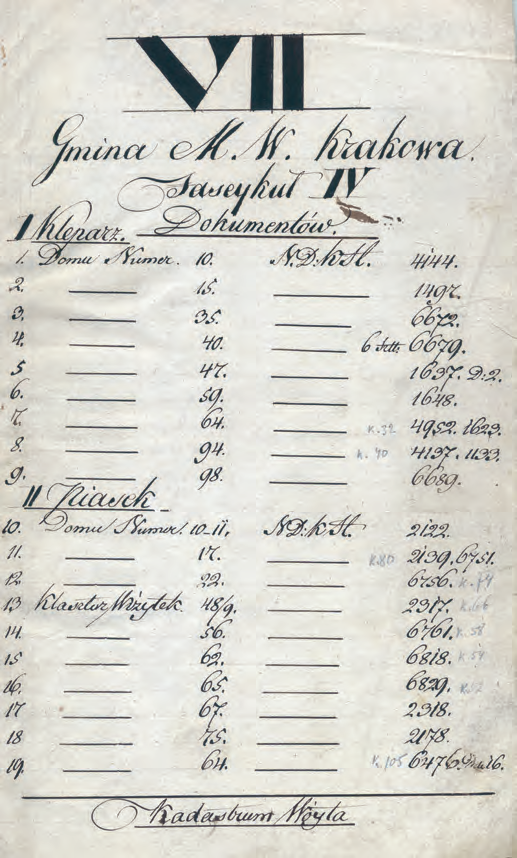 VII
Gmina M. W. Krakowa.
Fascykuł IV
Dokumentów.
I Kleparz.
1. Domu Numer. 10. N.D:k St. 4144.
2. 15. 1492.
3. 35. 6672.
4. 40. 6679.
5 47. 1637. D:2.
6. 59. 1648.
7. 64. k.32 4952. 1623.
8. 94. k. 40 4137. 1133.
9. 98. 6689.
II Piasek
10. Domu Numer. 10-11. N.D:k St. 2122.
11. 17. k.80 2139. 6751.
12. 22. 6756. k.74
13 Klasztor Wizytek 48/9. 2317. k.66
14. 56. 6761. k.58
15 62. 6818. k.54
16. 65. 6829. k.52
17 67. 2318.
18 75. 2178.
19. 64. k.105 6476.
Kadastrum Wóyta